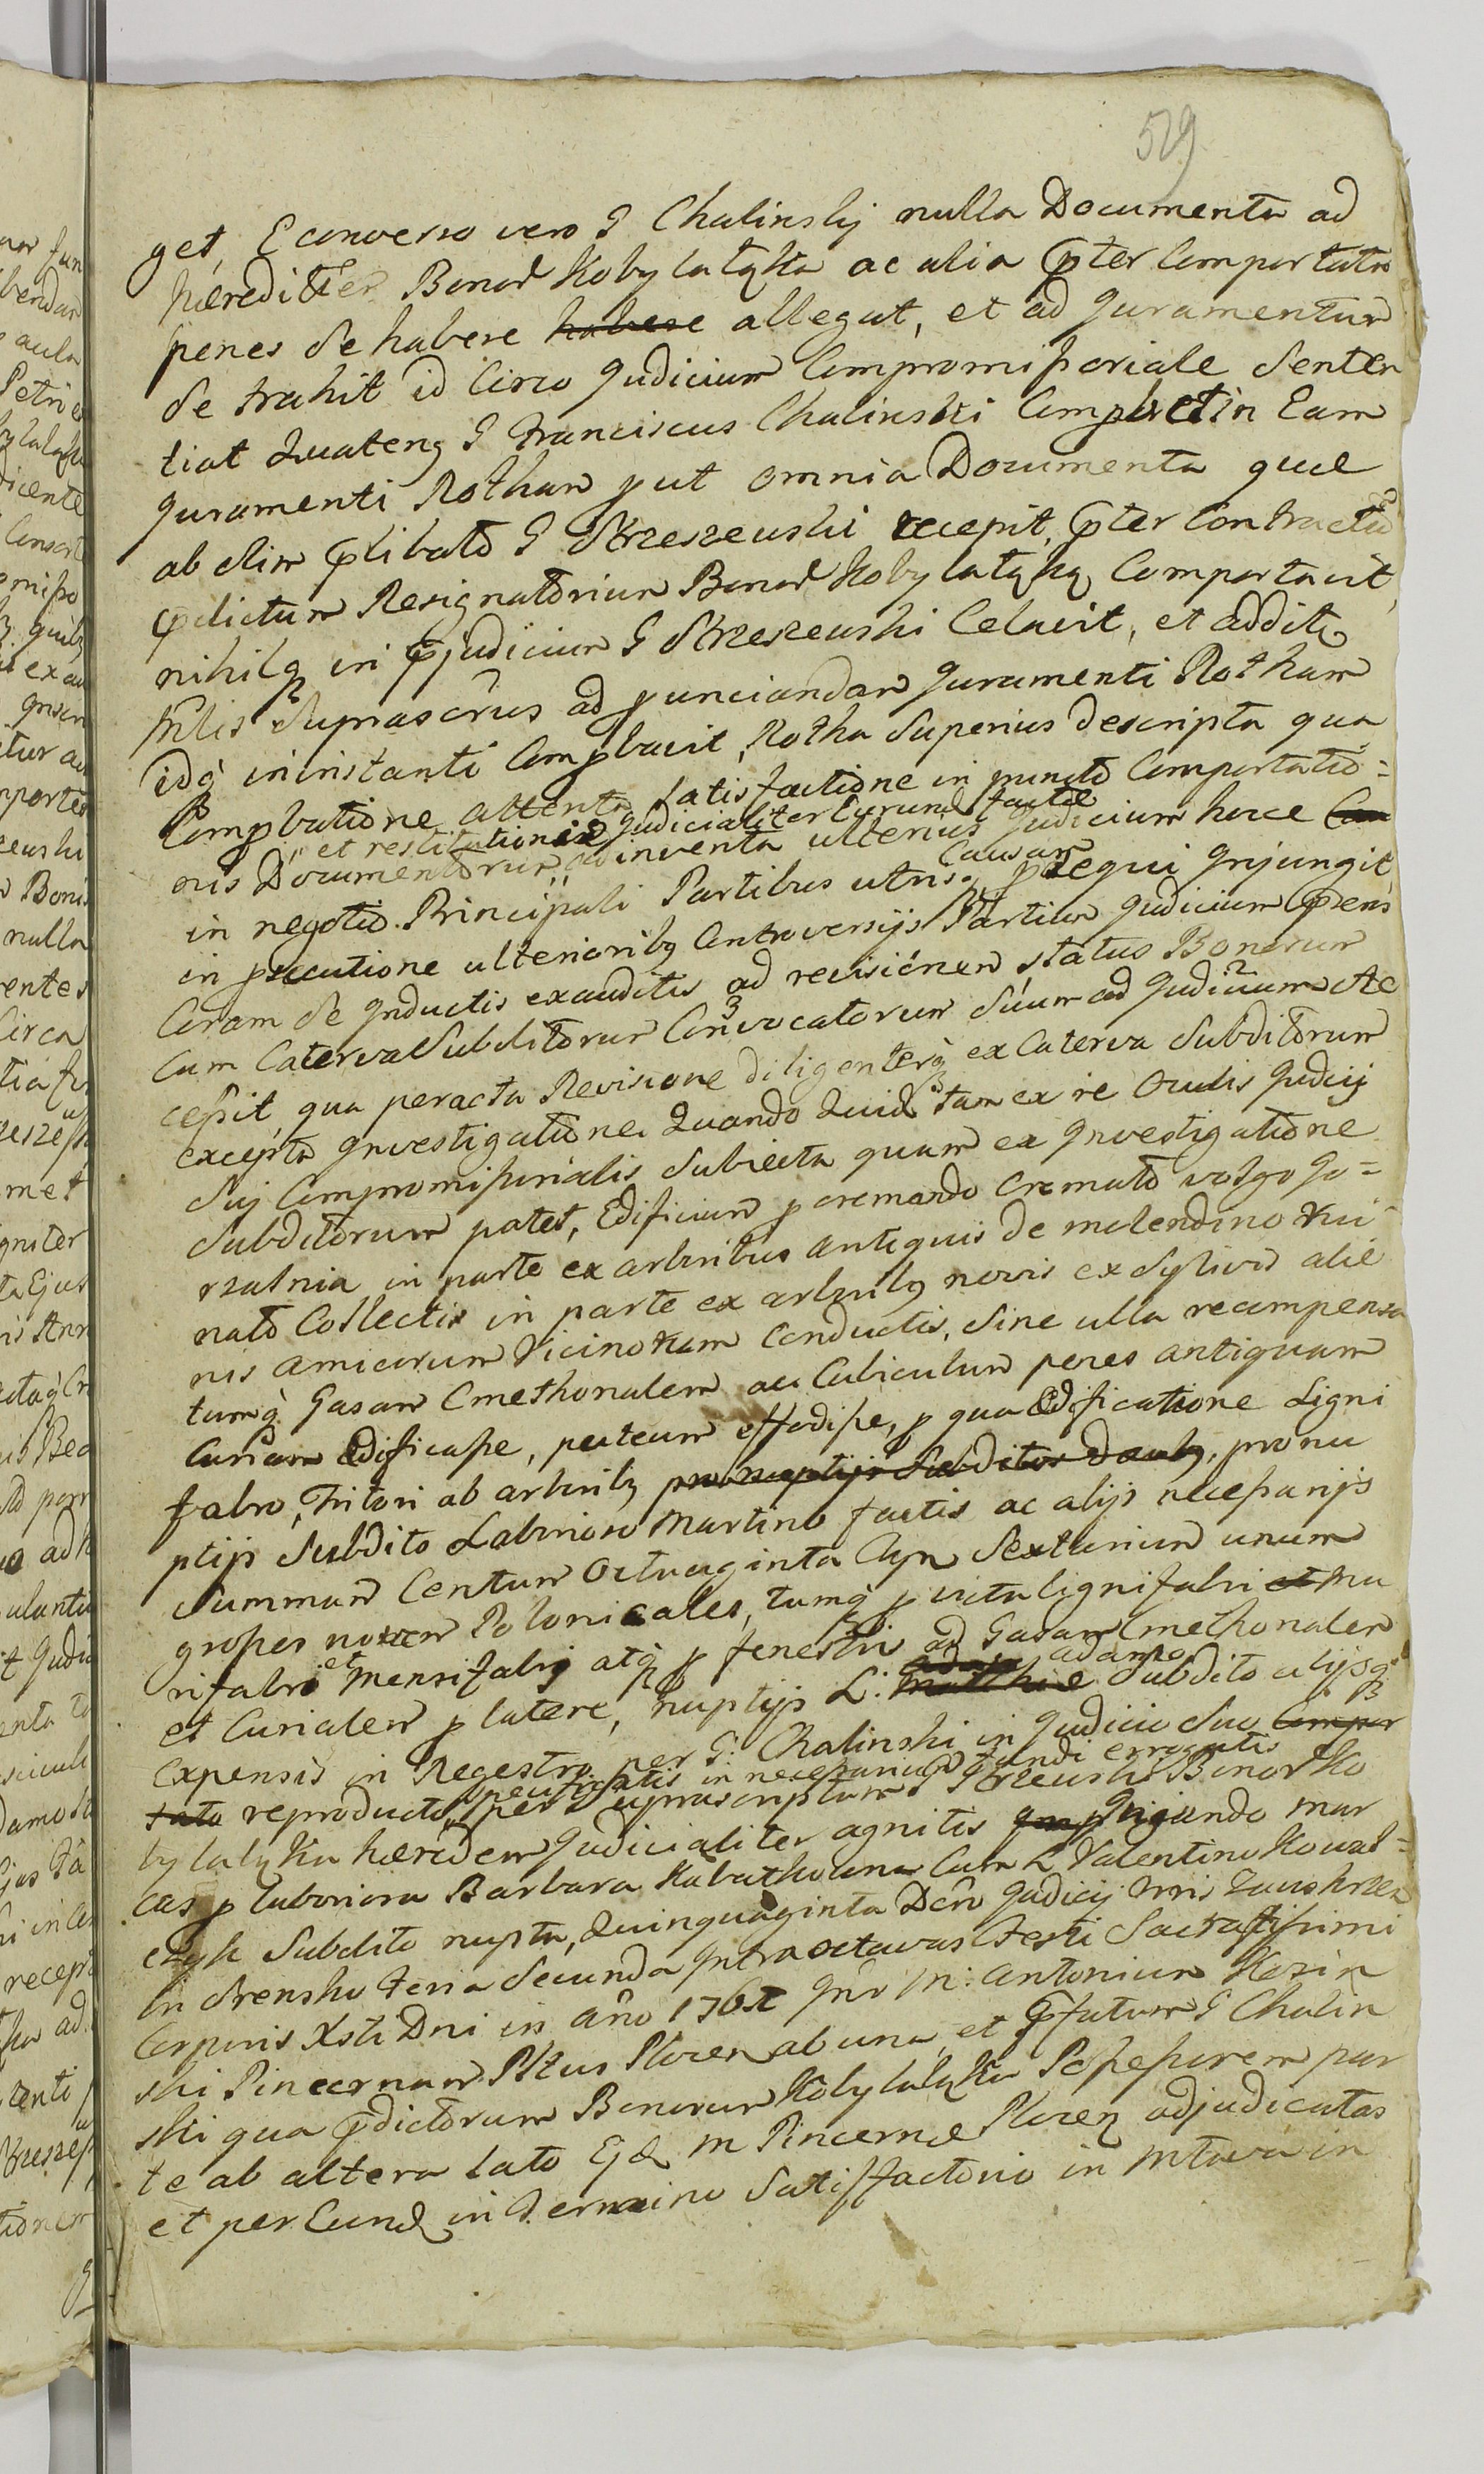 529
get, E converso vero G Chalinskij nulla Documenta ad
hæreditter Bonor Kobylatęka ac alia pter Comportata
penes Se habere habere allegat, et ad Juramentum
Se trahit id Circo Judicium Compromissoriale Senten
tiat Quateng G Franciscus Chalinski Comprbet in Eam
Juramenti Rotham put omnia Documenta quæ
ab olim plibato G Skrzeszewski recepit, pter Contractu
pdictum Resignatorium Bonor Kobylatęka Comportavit,
nihilq in pjudicium G Skrzeszewski Celavit, et addito
Suprascrius ad punciandam Juramenti Rotham
idq in instanti Comprbavit, Rotha Superius descripta qua
Comprbatione attenta, satisfactione in puncto Comportatio=
et restitutionis Judicialiter Eorund factæ
nis Documentorum adinventa ulterius Judicium hocce Cau
Causam
in negotio Principali Partibus utrisq psequi Injungit
in psecutione ulteriorib Controversijs Partium Judicium pens
Coram Se Inductis exauditis ad revisionem status Bonorum
Cum Caterva Subditorum Convocatorum Suum ad Judicium Ac
cessit, qua peracta Revisione diligenterq ex Caterva Subditorum
excepta Investigatione. Quando Quid tam ex re Oculis Judicij
Sui Compromissorialis Subiecta quam ex Investigatione
Subditorum patet, Edificium p cremando Cremato volgo Go=
rzalnia in parte ex arboribus antiquis de molendino rui
nato Collectis in parte ex arborib novis ex Sylivis alie
nis amicorum Vicinorum Conductis, Sine ulla recompensa
tumq Gasam Cmethonalem ac Cubiculum penes antiquam
Curiam Edificasse, puteum effodisse, p qua Edificatione Ligni
fabro, Tritori ab arborib pro nuptijs Subditor Danb, pro nu
ptijs Subdito Laborioso Martino factis ac alijs necessarijs
Summam Centum Octuaginta Cum Sextarium unum
grosses novem Polonicales, tumq p victu lignifabri et mu
rifabri et Mensifabri atq p fenestris ad Gasam Cmethonalem
Adamo
et Curialem p latere, nuptijs L: Mathiæ Subdito alijsq
expensis in Regestro per G: Chalinski in Judicio Suo Compor
specificatis in necessarium fundi erogatis
tato reproducto, per Suprascriptum G Skrzeuski Bonor Ko
bylatęka hæredem Judicialiter agnitis Injungendo mar
cas p laboriosa Barbara Kabathowna Cum L Valentino Kowal=
czyk Subdito nupta, Quinquaginta Dcro Judicij Trris Zauskrzen
in Srensko Feria Secunda Intra octavas Festi Sacratissimi
Corporis Xsti Dni in ano 1761 Inr M: Antonium Kosin
ski Pincernam Pltus Plocen ab una, et pfatum G Chalin
ski qua pdictorum Bonorum Kobylatęka Possessorem par
te ab altera lato Ejd M Pincernæ Plocen adjudicatas
et per Eund in Termino Satisfactorio in in